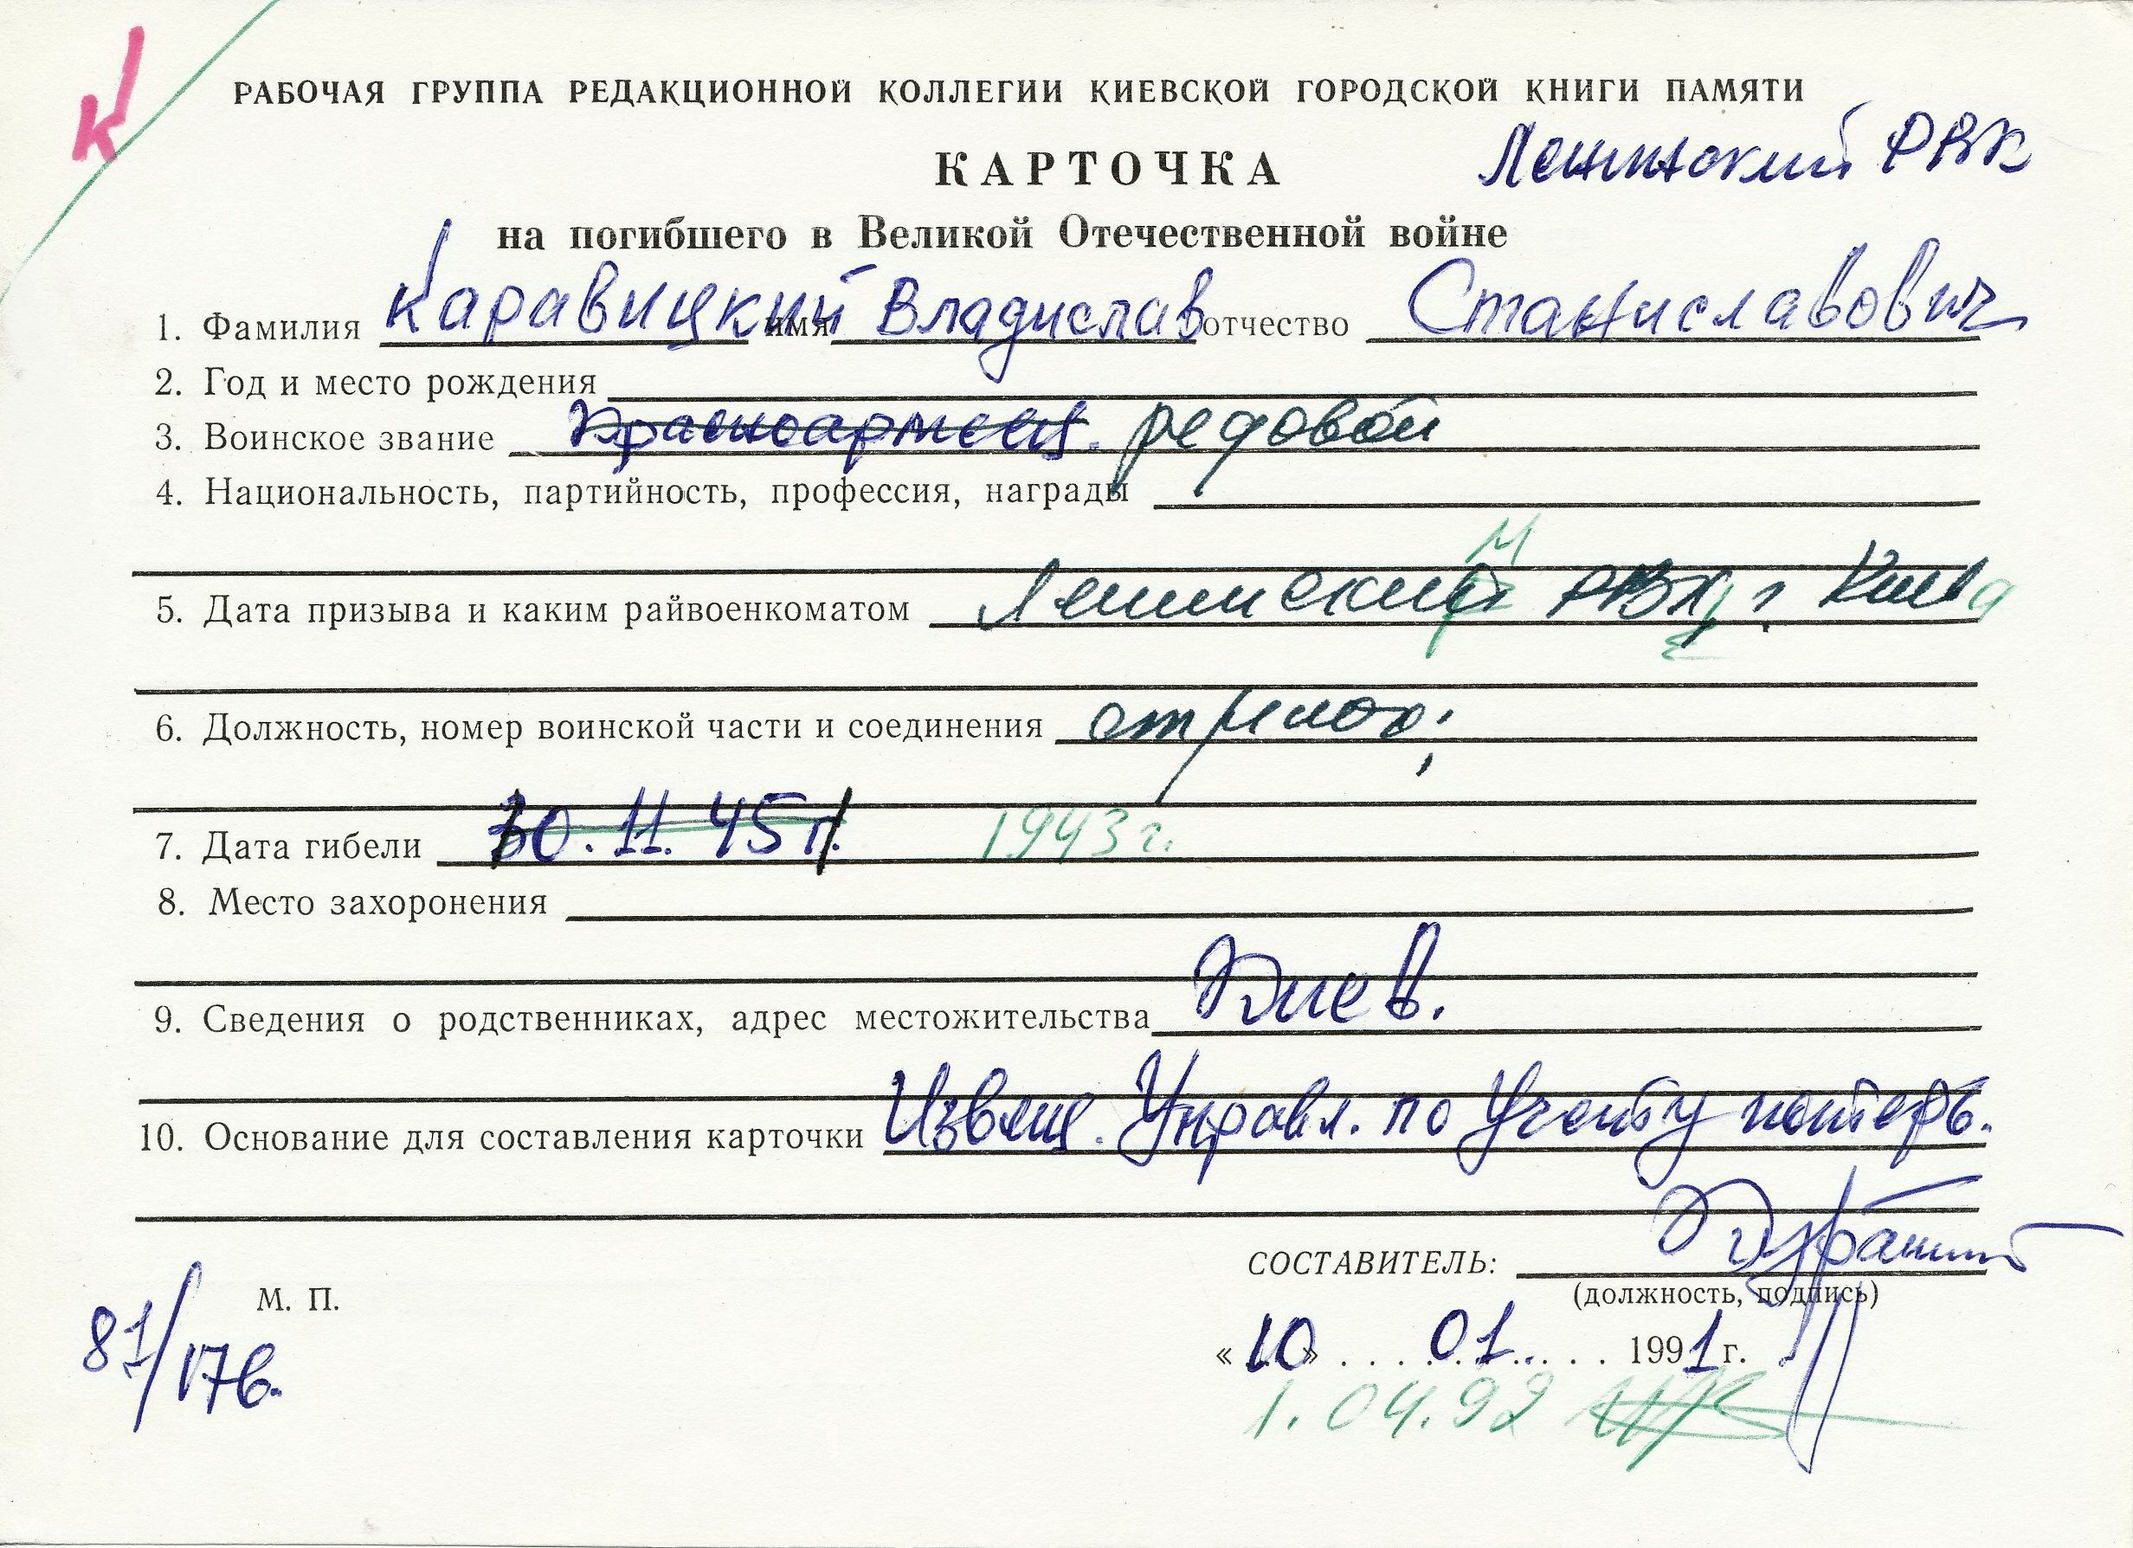 К
РАБОЧАЯ ГРУППА РЕДАКЦИОННОЙ КОЛЛЕГИИ КИЕВСКОЙ ГОРОДСКОЙ КНИГИ ПАМЯТИ
КАРТОЧКА
Ленинский РВК
на погибшего в Великой Отечественной войне
1. Фамилия Каравицкий имя Владислав отчество Станиславович
2. Год и место рождения
3. Воинское звание Красноармеец. редовой
4. Национальность, партийность, профессия, награды
5. Дата призыва и каким райвоенкоматом Ленинский РВК г. Киева
6. Должность, номер воинской части и соединения стрелок;
7. Дата гибели 30.11.45 г. 1943 г.
8. Место захоронения
9. Сведения о родственниках, адрес местожительства Киев.
10. Основание для составления карточки Извещ. Управл. по Учету потерь.
СОСТАВИТЕЛЬ:
(должность, подпись)
М. П.
87/17в.
«10» 01. 1991 г.
1.04.92